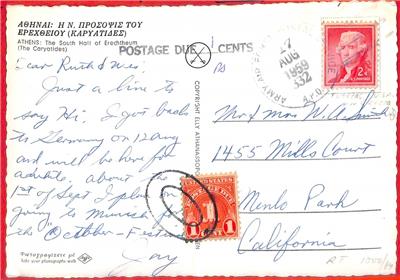 ΑΘΗΝΑΙ: Η Ν. ΠΡΟΣΟΨΙΣ ΤΟΥ
ΕΡΕΧΘΕΙΟΥ (ΚΑΡΥΑΤΙΔΕΣ)
ATHENS: The South Hall of Erechtheum
(The Caryatides)
Dear Ruth &
Just a line to
say Hi. I got back
to Germany on 12 aug
and will be here for
awhile, about the
1st of Sept I plan on
going to Munich for
the "October-Fest
Jay
Φωτογραφίσετε με
take your photographs with
COPYRIGHT ELLY
POSTAGE DUE
CENTS
ARMY
AUG
1959
332
A.P.O.
2¢
UNITED STATES
1 CENT 1
Mr & Mrs W. A. Smith
1455 Mills Court
Menlo Park
California